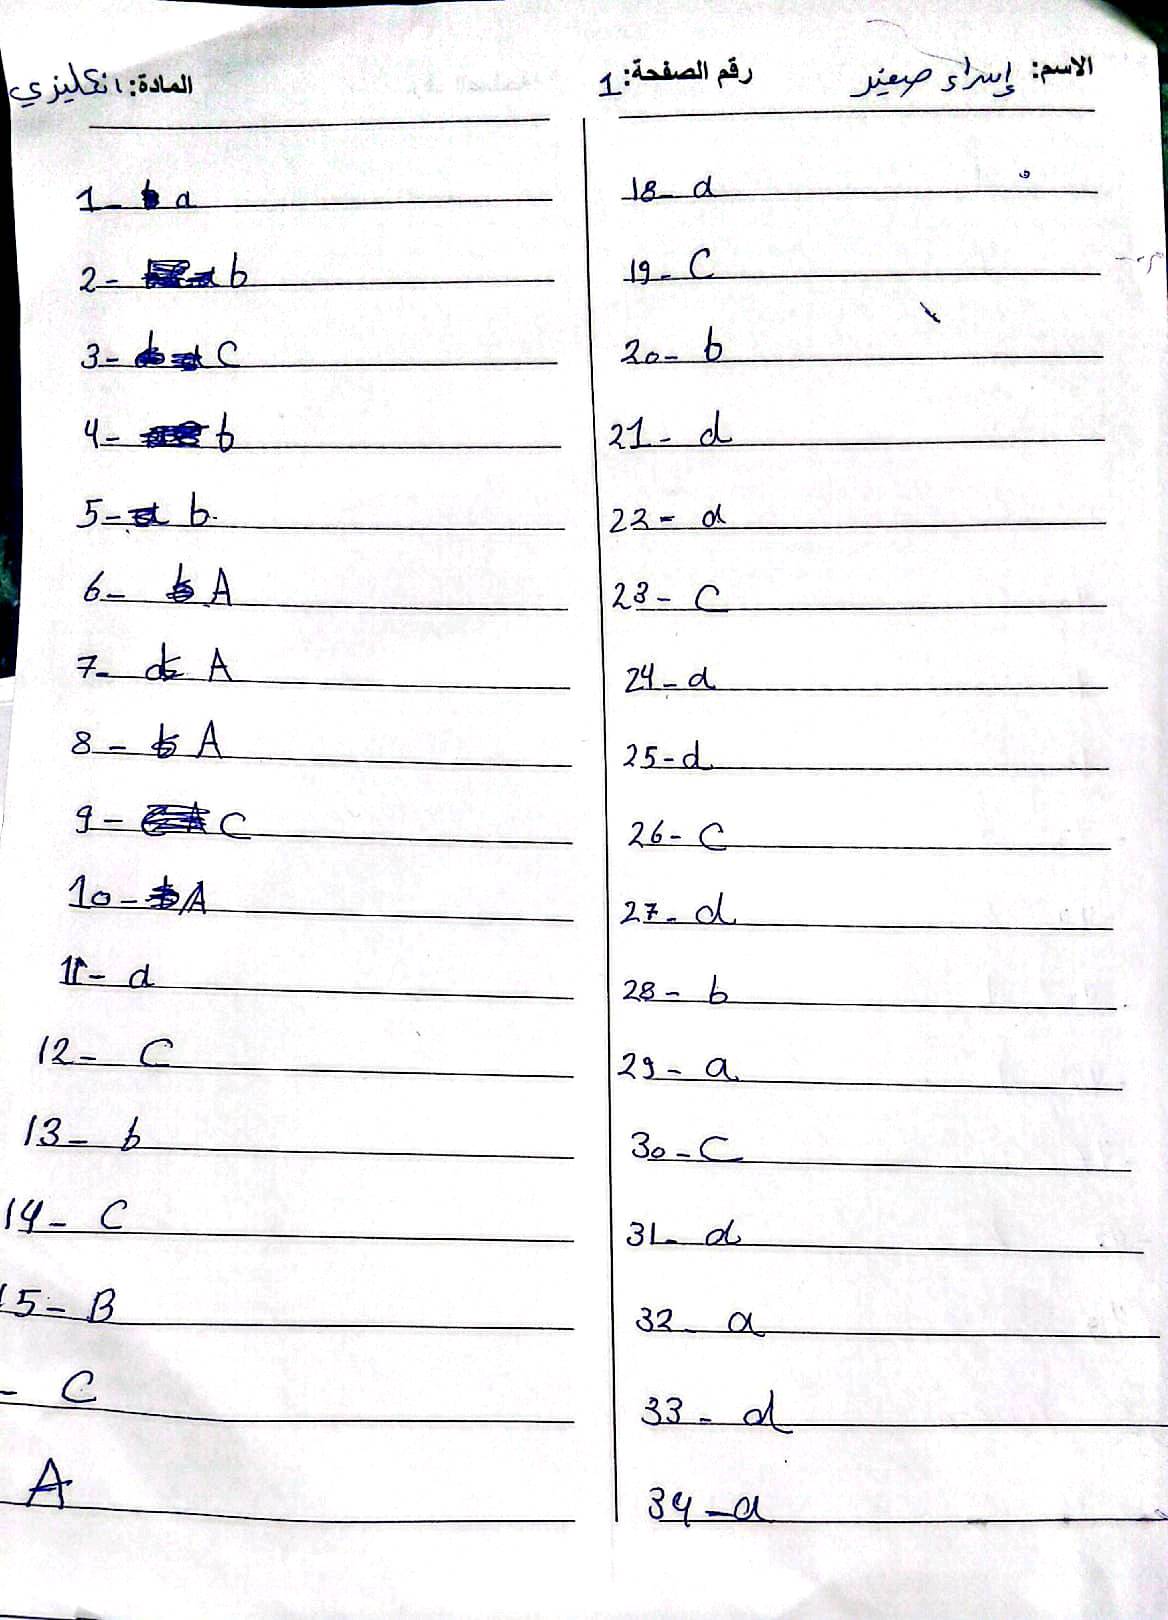 الاسم: إسراء صغير رقم الصفحة: 1 المادة: انكليزي
1- a
2- b
3- C
4- b
5- b
6- A
7- A
8- A
9- C
10- A
11- d
12- C
13- b
14- C
15- B
- C
A
18- d
19- C
20- b
21- d
22- d
23- C
24- d
25- d
26- C
27- d
28- b
29- a
30- C
31- d
32- a
33- d
34- a